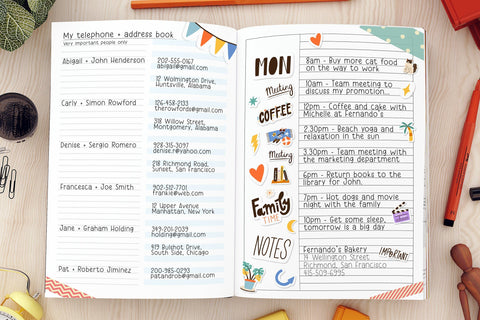 My telephone + address book
Very important people only
Abigail + John Henderson
202-555-0167
abigail@gmail.com
12 Wolmington Drive,
Huntsville, Alabama
Carly + Simon Rowford
126-458-2133
therowfords@gmail.com
318 Willow Street,
Montgomery, Alabama
Denise + Sergio Romero
928-315-3097
denise.r@yahoo.com
218 Richmond Road,
Sunset, San Francisco
Francesca + Joe Smith
902-512-7701
frankie@web.com
12 Upper Avenue
Manhattan, New York
Jane + Graham Holding
349-201-2039
holding@gmail.com
419 Bulghot Drive,
South Side, Chicago
Pat + Roberto Jiminez
200-985-0293
patandrob@gmail.com
MON
8am - Buy more cat food
on the way to work
Meeting
10am - Team meeting to
discuss my promotion...
COFFEE
12pm - Coffee and cake with
Michelle at Fernando's
2.30pm - Beach yoga and
relaxation in the sun
Meeting
3.30pm - Team meeting with
the marketing department
6pm - Return books to the
library for John.
Family
TIME
7pm - Hot dogs and movie
night with the family
10pm - Get some sleep,
tomorrow is a big day
NOTES
Fernando's Bakery
IMPORTANT
14 Wellington Street
Richmond, San Francisco
415-509-6995